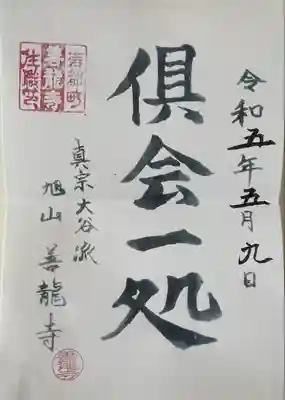 令和五年五月九日
倶会一処
真宗大谷派
旭山 善龍寺